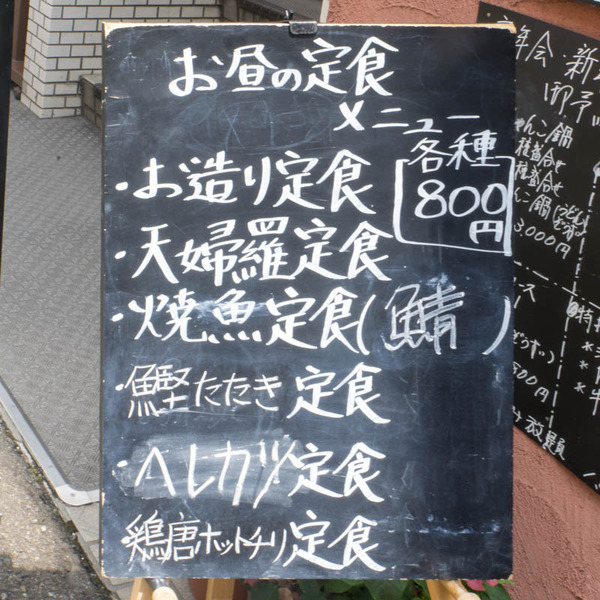 お昼の定食
メニュー
各種
800
円
・お造り定食
・天婦羅定食
・焼魚定食(鯖)
・鰹たたき定食
・ヘレカツ定食
・鶏唐ホットチリ定食
年会・新
鍋
3,000円
ース